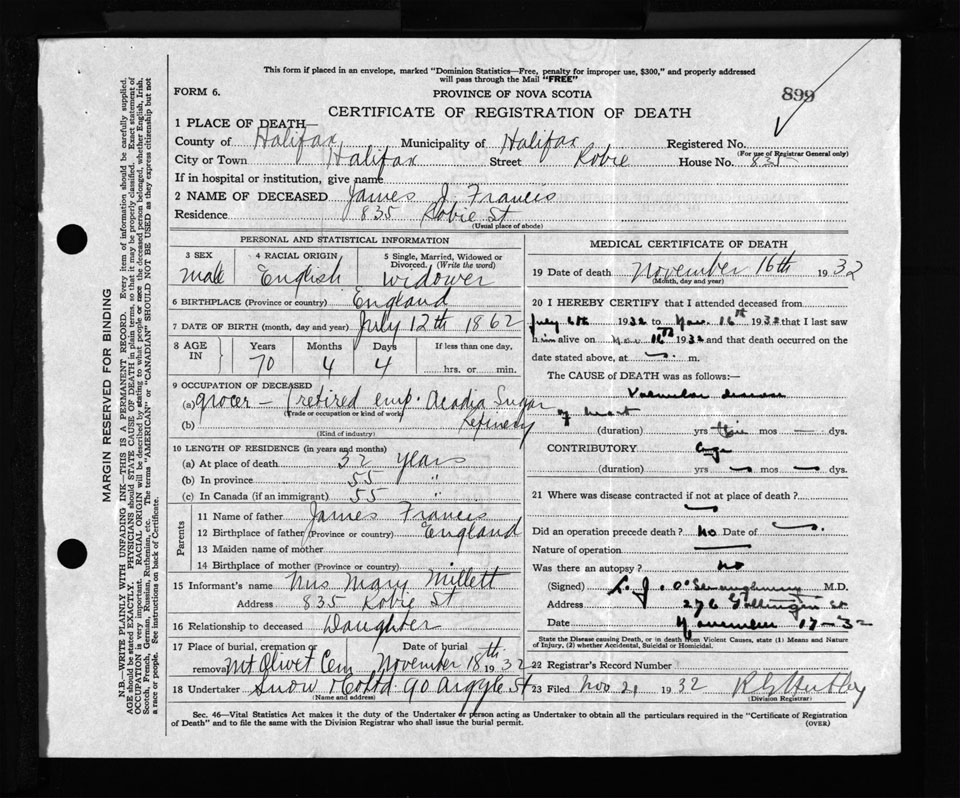 This form if placed in an envelope, marked "Dominion Statistics—Free, penalty for improper use, $300," and properly addressed
will pass through the Mail "FREE"
FORM 6.
PROVINCE OF NOVA SCOTIA
899
CERTIFICATE OF REGISTRATION OF DEATH
1 PLACE OF DEATH
County of Halifax Municipality of Halifax Registered No.
(For use of Registrar General only)
City or Town Halifax Street Robie House No. 835
If in hospital or institution, give name
2 NAME OF DECEASED James J. Francis
Residence 835 Robie St
(Usual place of abode)
PERSONAL AND STATISTICAL INFORMATION
3 SEX 4 RACIAL ORIGIN 5 Single, Married, Widowed or
Divorced. (Write the word)
Male English Widower
6 BIRTHPLACE (Province or country) England
7 DATE OF BIRTH (month, day and year) July 12th 1862
8 AGE IN Years Months Days If less than one day,
70 4 4 hrs. or min.
9 OCCUPATION OF DECEASED
(a) grocer – (retired emp. Acadia Sugar
(Trade or occupation or kind of work)
Refinery
(b)
(Kind of industry)
10 LENGTH OF RESIDENCE (in years and months)
(a) At place of death 32 years
(b) In province 55 "
(c) In Canada (if an immigrant) 55 "
Parents
11 Name of father James Francis
12 Birthplace of father (Province or country) England
13 Maiden name of mother
14 Birthplace of mother (Province or country)
15 Informant's name Mrs Mary Millett
Address 835 Robie St
16 Relationship to deceased Daughter
17 Place of burial, cremation or Date of burial
removal Mt Olivet Cem November 18th 1932
18 Undertaker Snow & Co Ltd 90 Argyle St
(Name and address)
MEDICAL CERTIFICATE OF DEATH
19 Date of death November 16th 1932
(Month, day and year)
20 I HEREBY CERTIFY that I attended deceased from
July 6th 1932 to Nov. 16th 1932 that I last saw
him alive on Nov 16th 1932 and that death occurred on the
date stated above, at m.
The CAUSE OF DEATH was as follows:—
Valvular disease
of heart
(duration) yrs mos — dys.
CONTRIBUTORY
(duration) yrs mos dys.
21 Where was disease contracted if not at place of death?
Did an operation precede death? No Date of
Nature of operation
Was there an autopsy? No
(Signed) M.D.
Address 276 Gottingen St
Date November 17 - 32
State the Disease causing Death, or in death from Violent Causes, state (1) Means and Nature
of Injury, (2) whether Accidental, Suicidal or Homicidal.
22 Registrar's Record Number
23 Filed Nov 21 1932
(Division Registrar)
Sec. 46—Vital Statistics Act makes it the duty of the Undertaker or person acting as Undertaker to obtain all the particulars required in the "Certificate of Registration
of Death" and to file the same with the Division Registrar who shall issue the burial permit. (OVER)
MARGIN RESERVED FOR BINDING
N.B.—WRITE PLAINLY WITH UNFADING INK—THIS IS A PERMANENT RECORD. Every item of information should be carefully supplied.
AGE should be stated EXACTLY. PHYSICIANS should STATE CAUSE OF DEATH in plain terms, so that it may be properly classified. Exact statement of
OCCUPATION is very important. RACIAL ORIGIN will be described by stating to what people or race the deceased person belonged, whether English, Irish,
Scotch, French, German, Russian, Ruthenian, etc. The terms "AMERICAN" or "CANADIAN" SHOULD NOT BE USED as they express citizenship but not
a race or people. See instructions on back of Certificate.